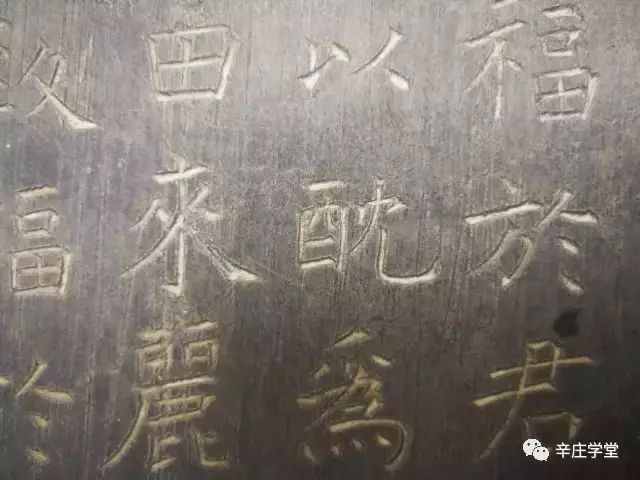 福於君
以酖爲
田來麗
致福於
辛庄学堂